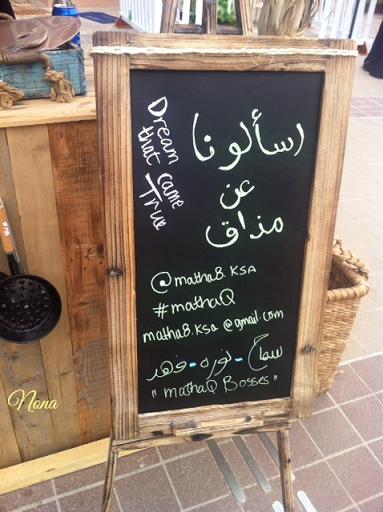 Dream
that came
True
اسألونا
عن
مذاق
@matha8.KSA
#mathaQ
matha8.KSA@gmail.com
سماح - نوره - فهد
"mathaQ Bosses"
Nona